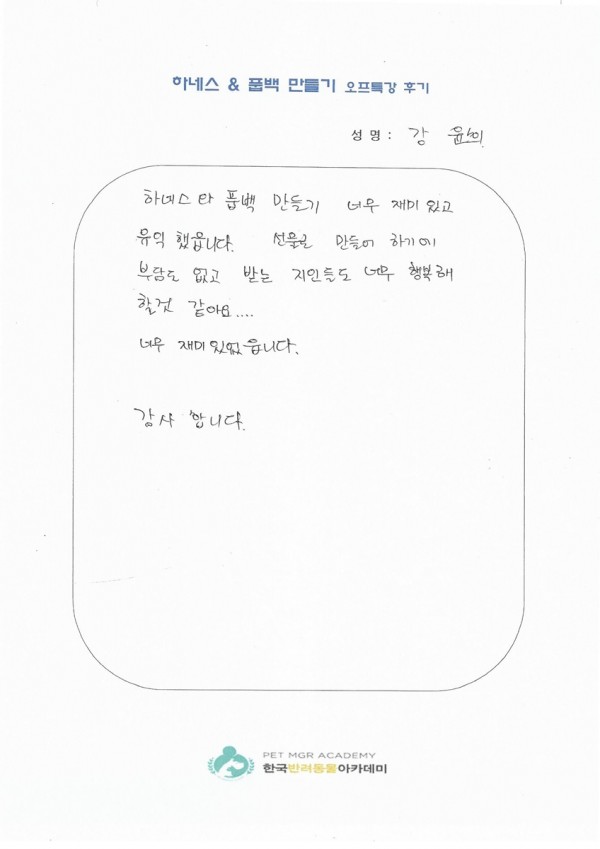 하네스 & 풉백 만들기 오프특강 후기
성 명 : 강 윤희
하네스 타 풉백 만들기 너무 재미 있고
유익 했읍니다. 선물로 만들어 하기에
부담도 없고 받는 지인들도 너무 행복해
할것 같아요....
너무 재미 있었읍니다.
감사 합니다.
PET MGR ACADEMY
한국반려동물아카데미